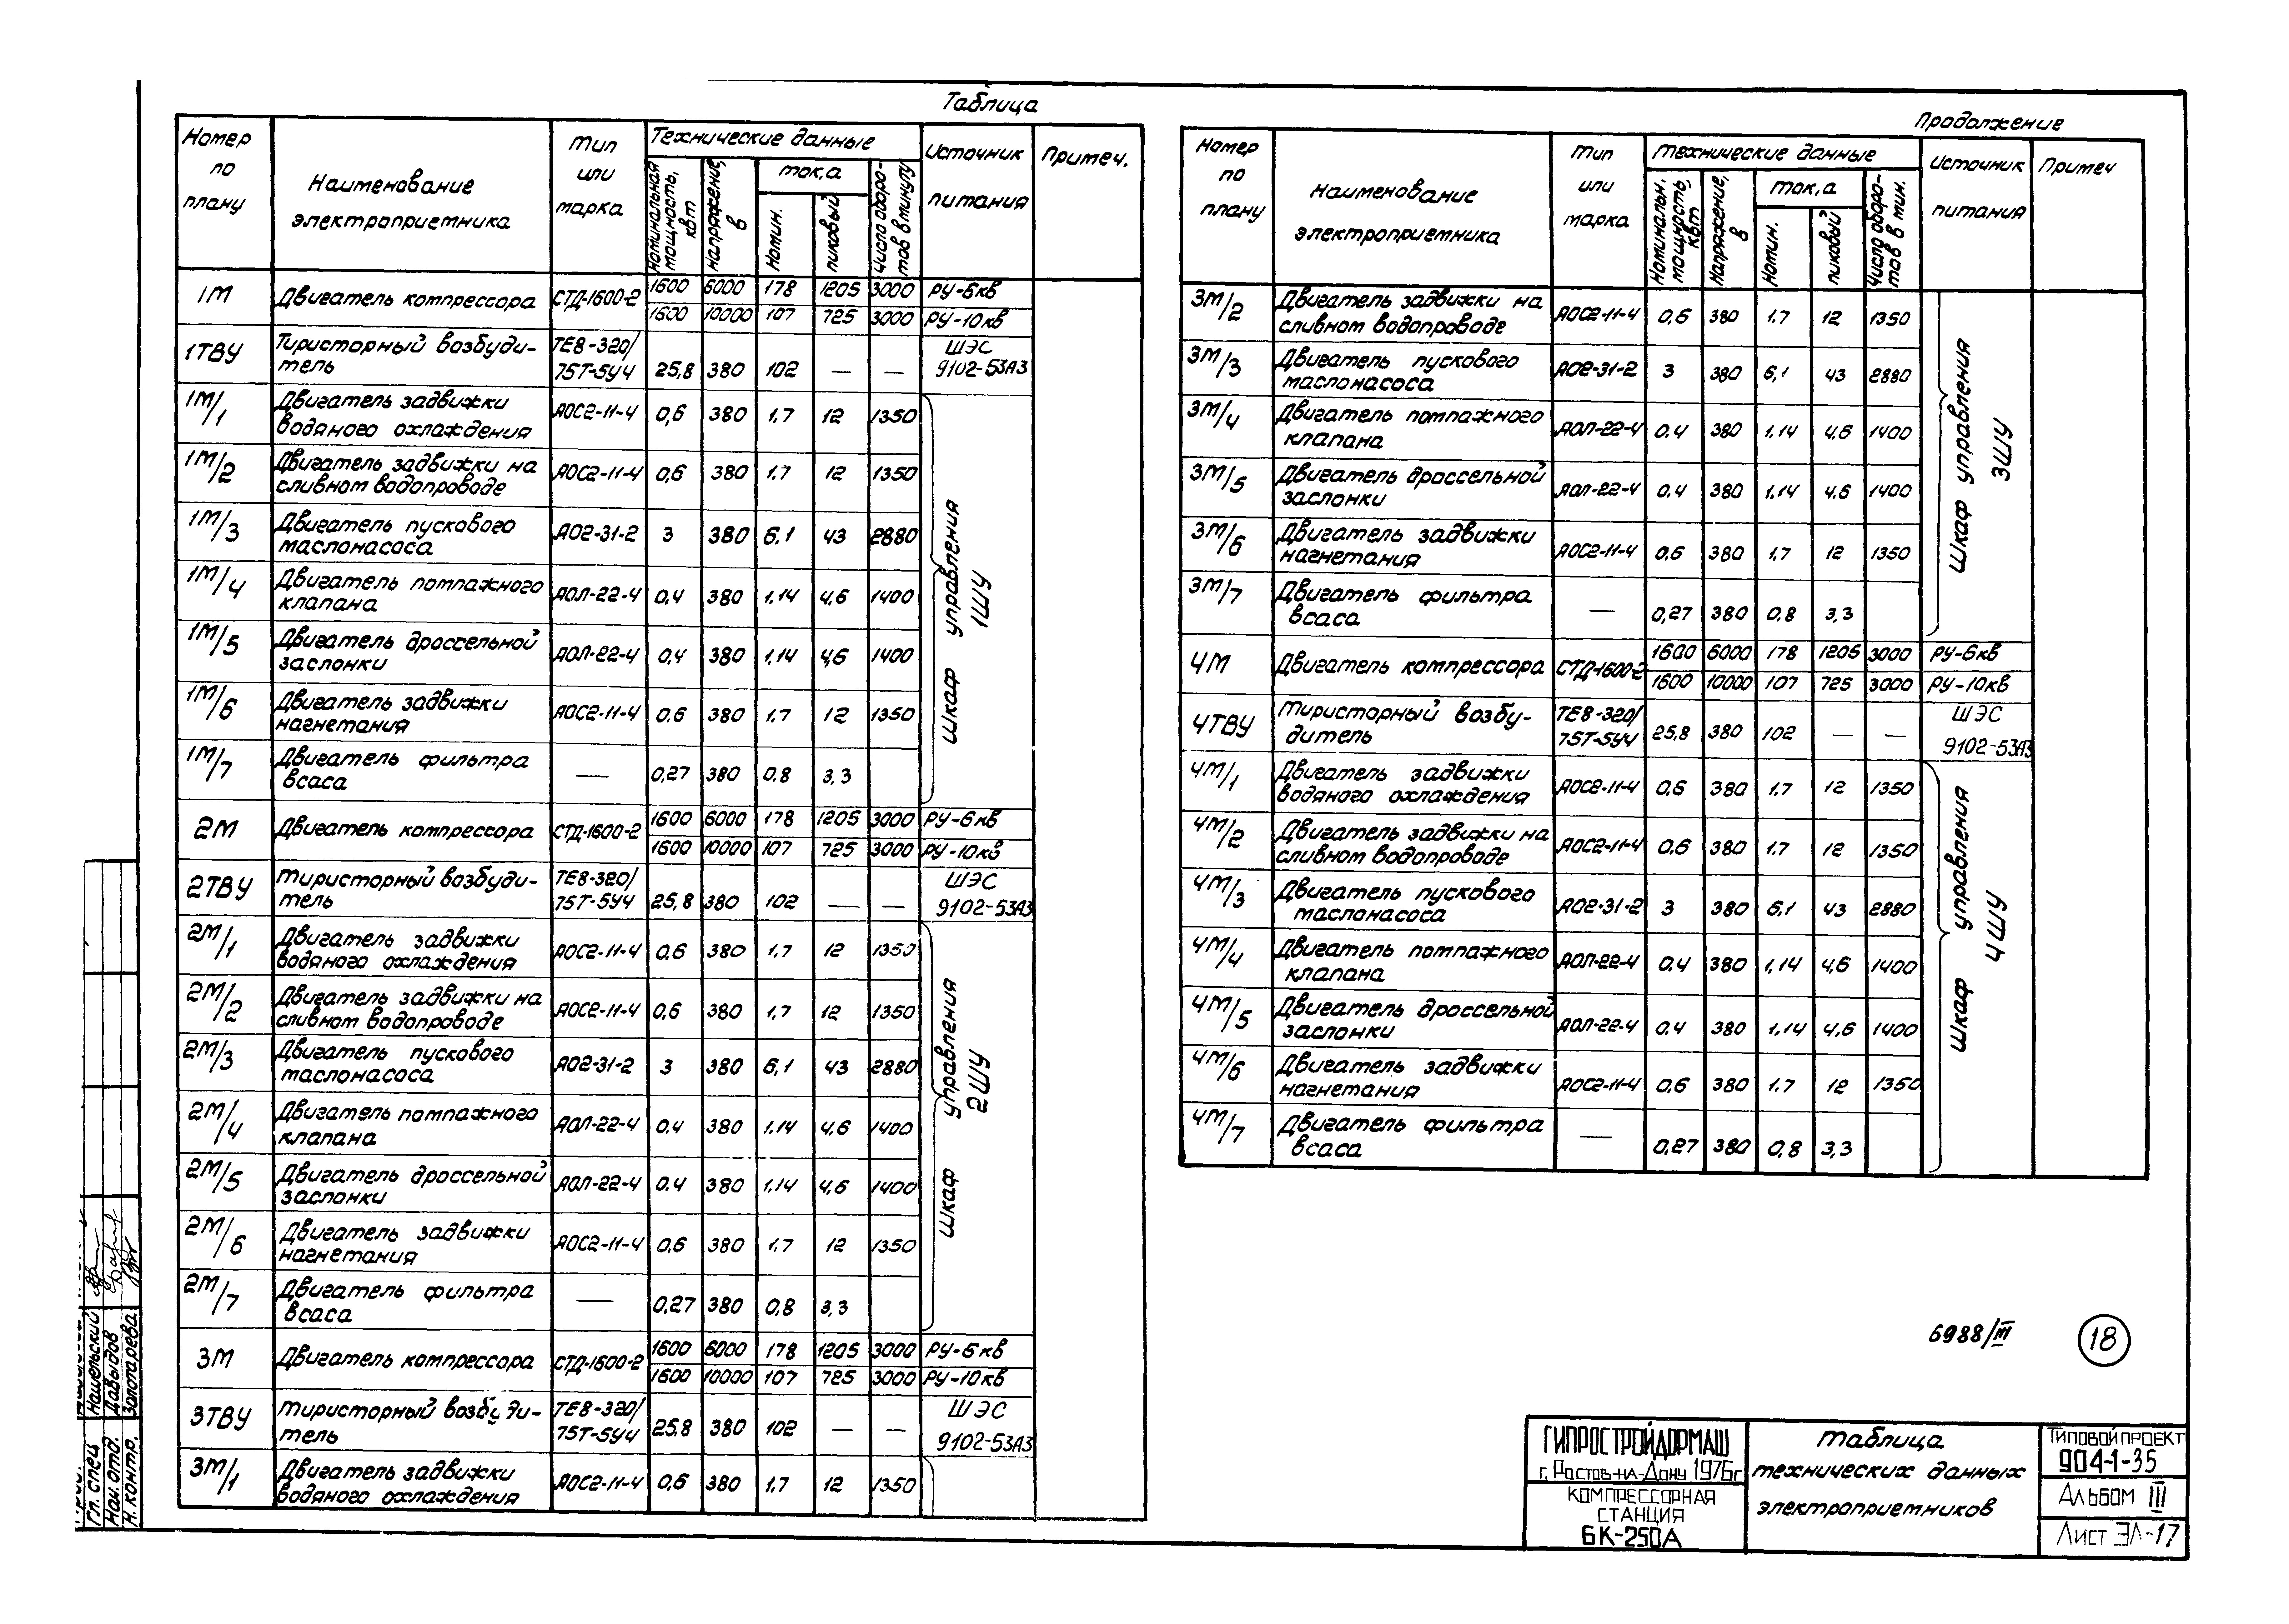 Таблица
Номер по плану
Наименование электроприемника
Тип или марка
Технические данные
Номинальная мощность, квт
Напряжение, в
ток, а
Номин.
пиковый
Число оборотов в минуту
Источник питания
Примеч.
1М Двигатель компрессора СТД-1600-2 1600 6000 178 1205 3000 РУ-6кв
1600 10000 107 725 3000 РУ-10кв
1ТВУ Тиристорный возбуди- ТЕ8-320/ ШЭС
тель 75Т-5У4 25,8 380 102 — — 9102-53А3
1М/1 Двигатель задвижки АОС2-11-4 0,6 380 1.7 12 1350
водяного охлаждения
1М/2 Двигатель задвижки на АОС2-11-4 0,6 380 1.7 12 1350
сливном водопроводе
1М/3 Двигатель пускового АО2-31-2 3 380 6.1 43 2880
маслонасоса
1М/4 Двигатель помпажного АОЛ-22-4 0.4 380 1,14 4,6 1400
клапана
1М/5 Двигатель дроссельной АОЛ-22-4 0,4 380 1,14 4,6 1400
заслонки
1М/6 Двигатель задвижки АОС2-11-4 0.6 380 1.7 12 1350
нагнетания
1М/7 Двигатель фильтра — 0,27 380 0,8 3,3
всаса
Шкаф управления 1ШУ
2М Двигатель компрессора СТД-1600-2 1600 6000 178 1205 3000 РУ-6кв
1600 10000 107 725 3000 РУ-10кв
2ТВУ Тиристорный возбуди- ТЕ8-320/ ШЭС
тель 75Т-5У4 25,8 380 102 — — 9102-53А3
2М/1 Двигатель задвижки АОС2-11-4 0,6 380 1.7 12 1350
водяного охлаждения
2М/2 Двигатель задвижки на АОС2-11-4 0,6 380 1.7 12 1350
сливном водопроводе
2М/3 Двигатель пускового АО2-31-2 3 380 6,1 43 2880
маслонасоса
2М/4 Двигатель помпажного АОЛ-22-4 0.4 380 1,14 4,6 1400
клапана
2М/5 Двигатель дроссельной АОЛ-22-4 0.4 380 1,14 4,6 1400
заслонки
2М/6 Двигатель задвижки АОС2-11-4 0,6 380 1.7 12 1350
нагнетания
2М/7 Двигатель фильтра — 0,27 380 0,8 3,3
всаса
Шкаф управления 2ШУ
3М Двигатель компрессора СТД-1600-2 1600 6000 178 1205 3000 РУ-6кв
1600 10000 107 725 3000 РУ-10кв
3ТВУ Тиристорный возбуди- ТЕ8-320/ ШЭС
тель 75Т-5У4 25.8 380 102 — — 9102-53А3
3М/1 Двигатель задвижки АОС2-11-4 0,6 380 1.7 12 1350
водяного охлаждения
Продолжение
Номер по плану
Наименование электроприемника
Тип или марка
Технические данные
Номинальн. мощность, квт
Напряжение, в
ток, а
Номин.
пиковый
Число оборотов в мин.
Источник питания
Примеч
3М/2 Двигатель задвижки на АОС2-11-4 0,6 380 1.7 12 1350
сливном водопроводе
3М/3 Двигатель пускового АО2-31-2 3 380 6,1 43 2880
маслонасоса
3М/4 Двигатель помпажного АОЛ-22-4 0.4 380 1,14 4.6 1400
клапана
3М/5 Двигатель дроссельной АОЛ-22-4 0.4 380 1,14 4.6 1400
заслонки
3М/6 Двигатель задвижки АОС2-11-4 0,6 380 1.7 12 1350
нагнетания
3М/7 Двигатель фильтра — 0,27 380 0,8 3,3
всаса
Шкаф управления 3ШУ
4М Двигатель компрессора СТД-1600-2 1600 6000 178 1205 3000 РУ-6кв
1600 10000 107 725 3000 РУ-10кв
4ТВУ Тиристорный возбу- ТЕ8-320/ ШЭС
дитель 75Т-5У4 25,8 380 102 — — 9102-53А3
4М/1 Двигатель задвижки АОС2-11-4 0,6 380 1.7 12 1350
водяного охлаждения
4М/2 Двигатель задвижки на АОС2-11-4 0.6 380 1.7 12 1350
сливном водопроводе
4М/3 Двигатель пускового АО2-31-2 3 380 6,1 43 2880
маслонасоса
4М/4 Двигатель помпажного АОЛ-22-4 0.4 380 1,14 4,6 1400
клапана
4М/5 Двигатель дроссельной АОЛ-22-4 0.4 380 1,14 4,6 1400
заслонки
4М/6 Двигатель задвижки АОС2-11-4 0,6 380 1.7 12 1350
нагнетания
4М/7 Двигатель фильтра — 0,27 380 0,8 3,3
всаса
Шкаф управления 4ШУ
6988/III 18
ГИПРОСТРОЙДОРМАШ
г. Ростов-на-Дону 1976г
КОМПРЕССОРНАЯ
СТАНЦИЯ
6К-250А
Таблица
технических данных
электроприемников
ТИПОВОЙ ПРОЕКТ
904-1-35
Альбом III
Лист ЭЛ-17
Гл. спец Нашельский
Нач. отд. Давыдов
Н. контр. Золотарева